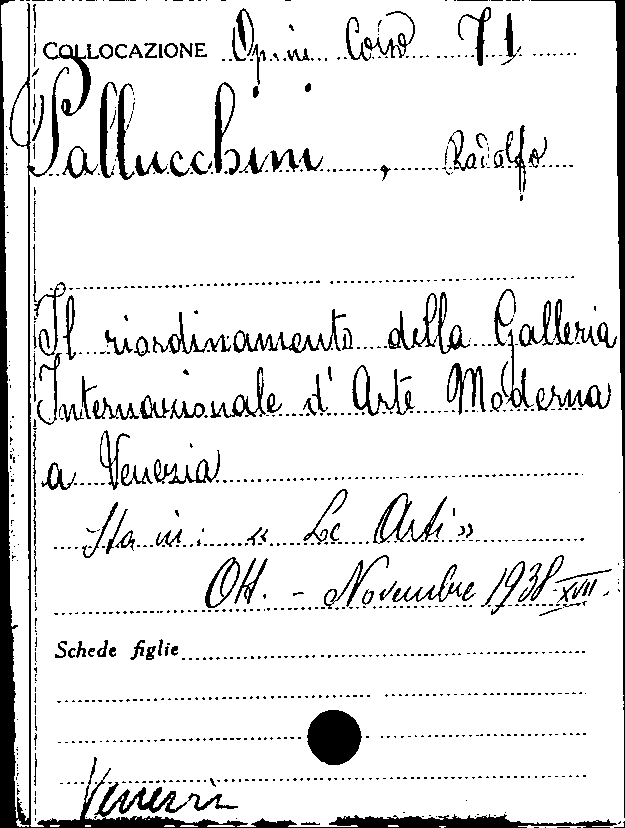 COLLOCAZIONE Op. in. Corso 71
Pallucchini, Rodolfo
Il riordinamento della Galleria
Internazionale d'Arte Moderna
a Venezia
Sta in: « Le Arti »
Ott. - Novembre 1938 XVII.
Schede figlie
Venezia